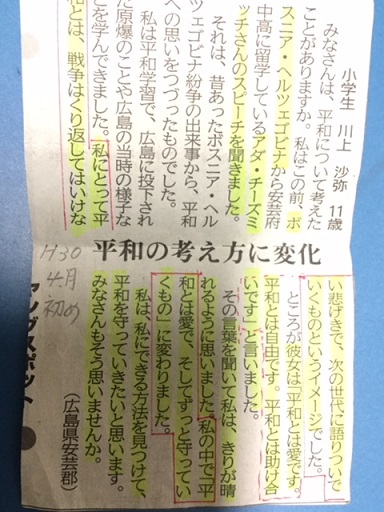 平和の考え方に変化
小学生 川上 沙弥 11歳
みなさんは、平和について考えた
ことがありますか。私はこの前、ボ
スニア・ヘルツェゴビナから安芸府
中高に留学しているアダ・チーズミ
ッチさんのスピーチを聞きました。
それは、昔あったボスニア・ヘル
ツェゴビナ紛争の出来事から、平和
への思いをつづったものでした。
私は平和学習で、広島に投下され
た原爆のことや広島の当時の様子な
どを学んできました。私にとって平
和とは、戦争はくり返してはいけな
い悲げきで、次の世代に語りついで
いくものというイメージでした。
ところが彼女は「平和とは愛です。
平和とは自由です。平和とは助け合
いです」と言いました。
その言葉を聞いて私は、きりが晴
れるように思いました。私の中で「平
和とは愛で、そしてずっと守ってい
くもの」に変わりました。
私は、私にできる方法を見つけて、
平和を守っていきたいと思います。
みなさんもそう思いませんか。
（広島県安芸郡）
H30
4月
初め
ヤングスポット